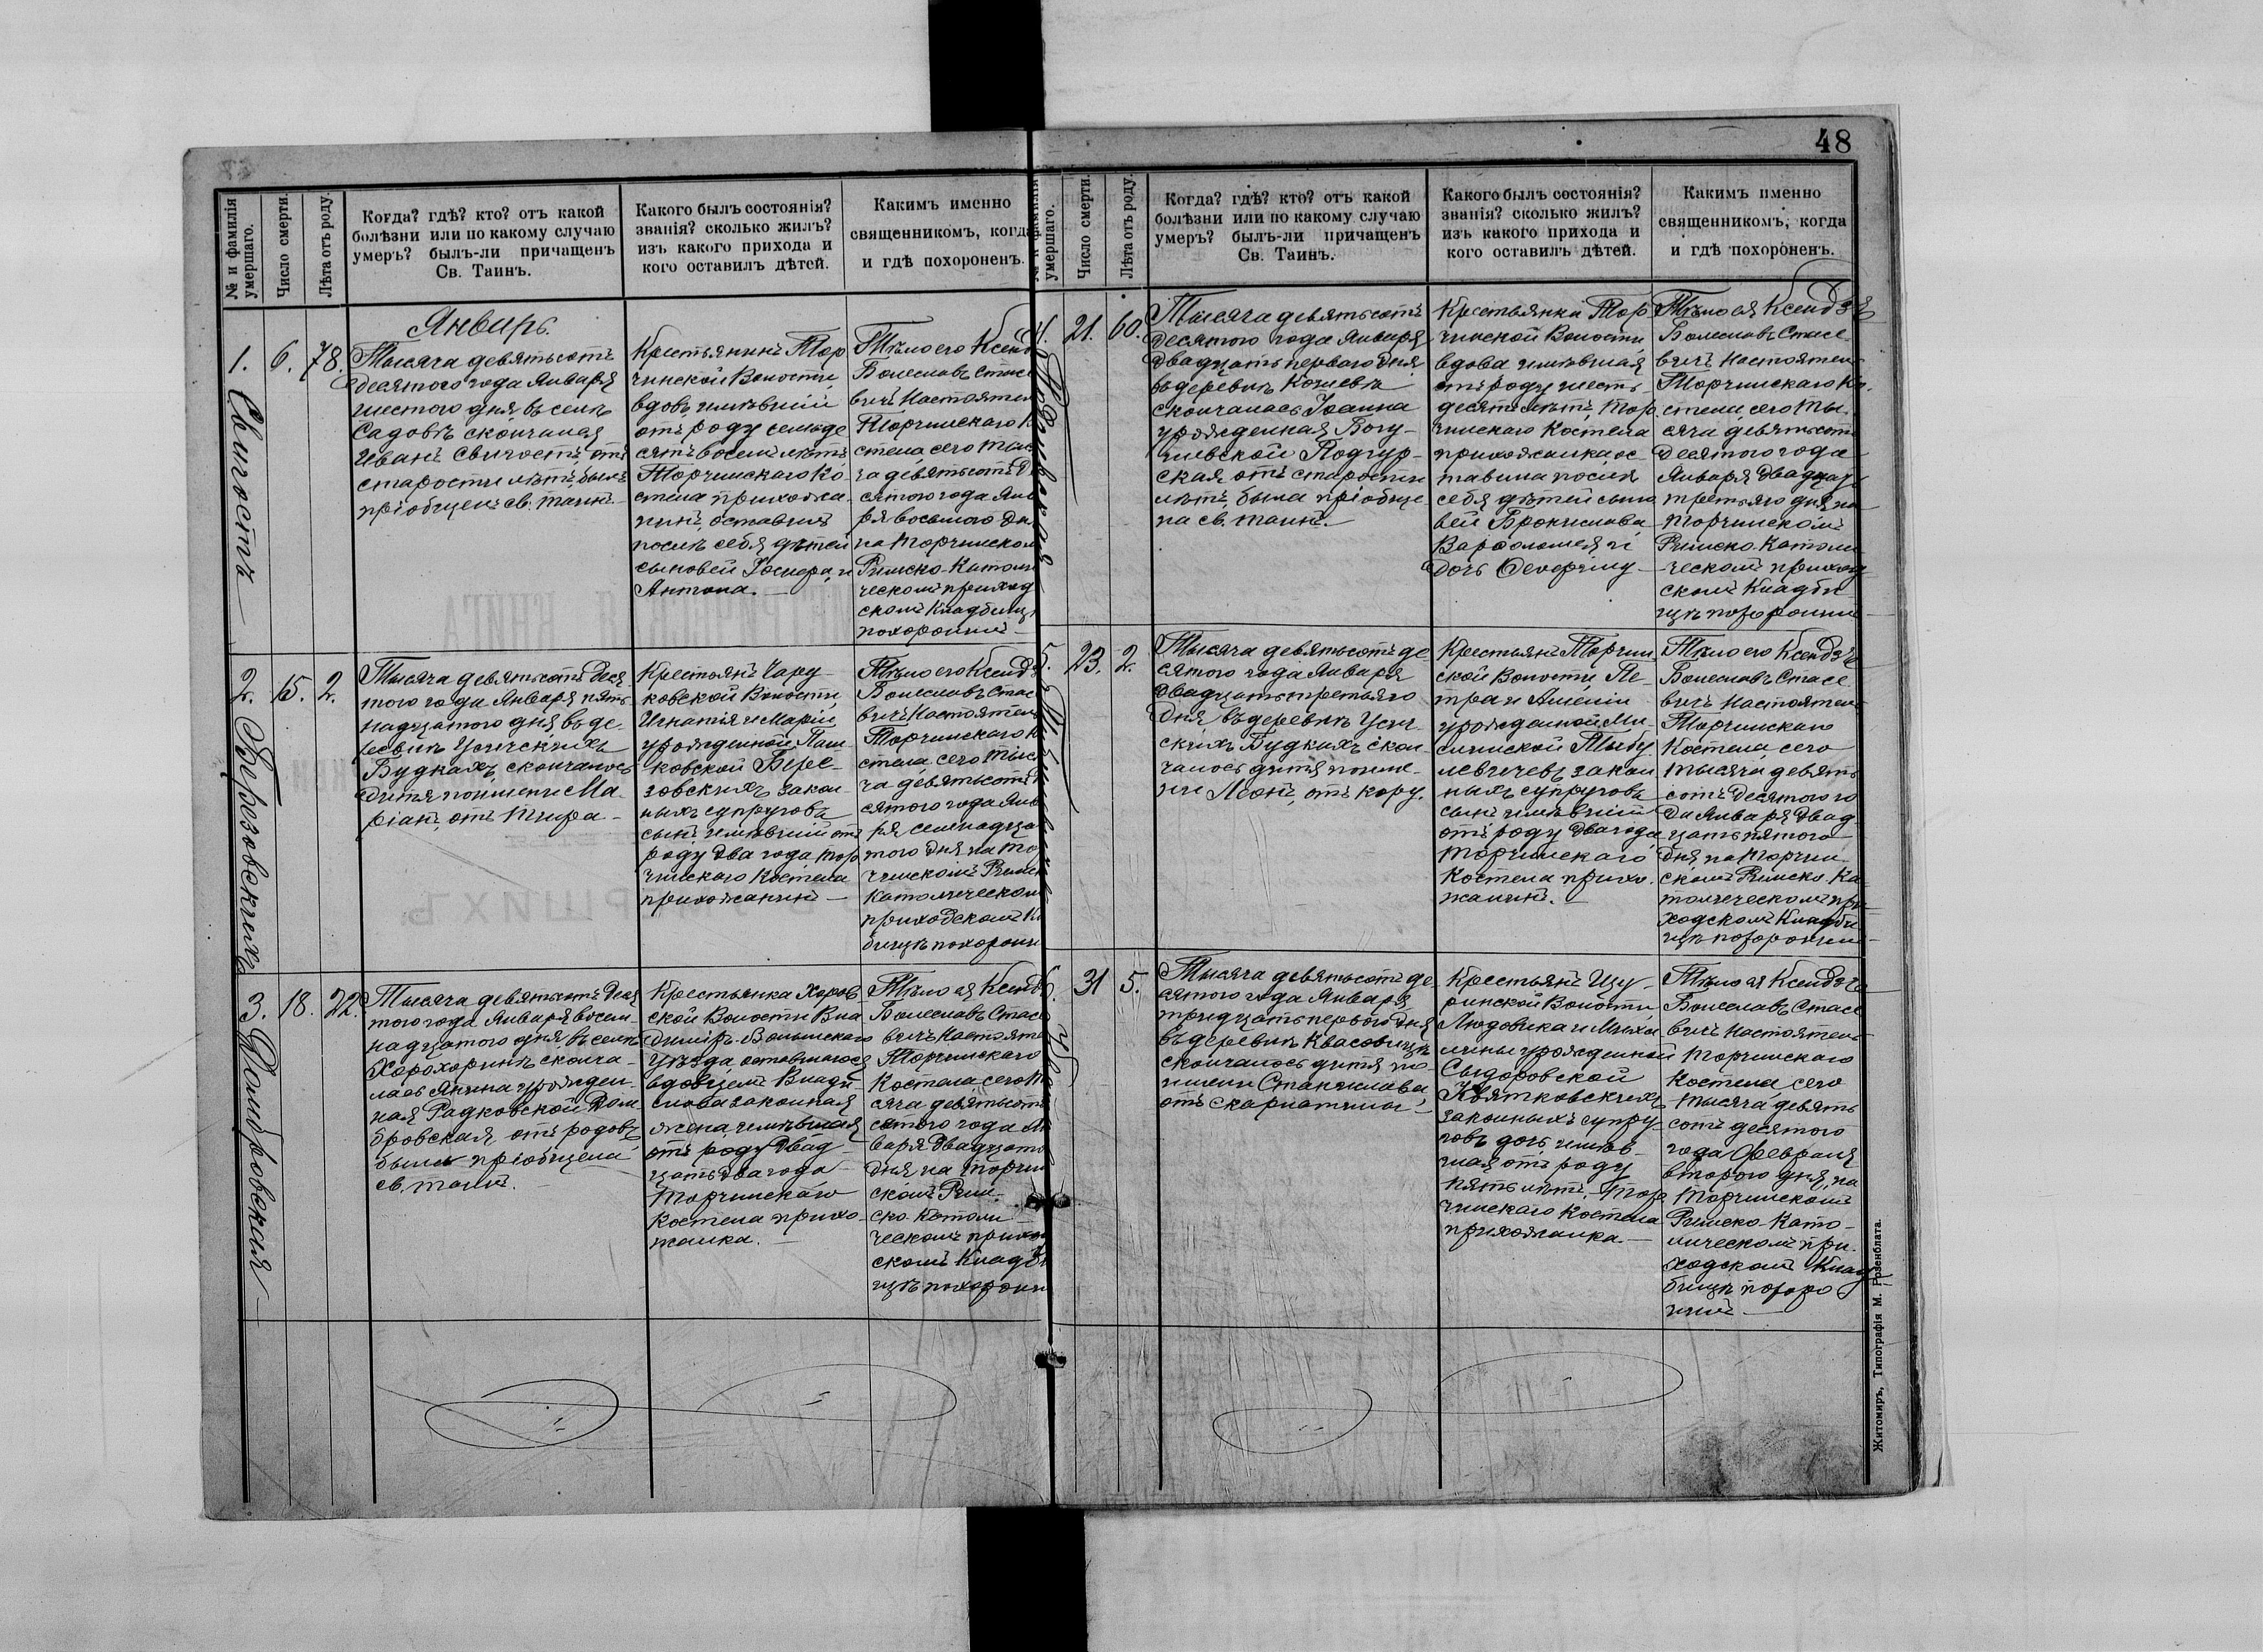 48
№ и фамилія
умершаго.
Число смерти.
Лѣта отъ роду.
Когда? гдѣ? кто? отъ какой
болѣзни или по какому случаю
умеръ? былъ-ли причащенъ
Св. Таинъ.
Какого былъ состоянія?
званія? сколько жилъ?
изъ какого прихода и
кого оставилъ дѣтей.
Какимъ именно
священникомъ, когда
и гдѣ похороненъ.
Январь.
1. Свигость
6.
78.
Тысяча девятьсотъ
десятого года Января
шестого дня въ селѣ
Садовѣ скончался
Иванъ Свигость, отъ
старости лѣтъ, былъ
пріобщенъ св. таинъ.
Крестьянинъ Тор
чинской Волости,
вдовъ, имѣвшій
отъ роду семьде
сятъ восемь лѣтъ
Торчинскаго Ко
стела прихожа
нинъ, оставилъ
послѣ себя дѣтей
сыновей и
Антона.
Тѣло его Ксенд
Болеславъ Стас
вичъ Настоятел
Торчинскаго К
стела сего Тыс
ча девятьсотъ д
сятого года Янв
ря восьмого дн
на Торчинском
Римско-Католи
ческомъ приход
скомъ Кладбищ
похоронилъ
2. Березовскихъ
15.
2.
Тысяча девятьсотъ деся
того года Января пят
надцатого дня въ де
ревнѣ Усичскихъ
Будкахъ, скончалось
дитя поимени Ма
ріанъ, отъ тифа
Крестьянъ Чару
ковской Волости,
Игнатія и Маріи
урожденной Паш
ковской Бере
зовскихъ закон
ныхъ супруговъ
сынъ имѣвшій отъ
роду два года, Тор
чинскаго Костела
прихожанинъ
Тѣло его Ксендз
Болеславъ Стас
вичъ Настоятел
Торчинскаго К
стела сего Тыс
ча девятьсотъ д
сятого года Янв
ря семнадца
того дня на То
чинскомъ Римск
Католическом
приходскомъ К
бищѣ похорони
3. Домбровская
18.
22.
Тысяча девятьсотъ деся
того года Января восем
надцатого дня, въ селѣ
Хорохоринѣ сконча
лась Янина урожден
ная Радковской Дом
бровская, отъ родовъ
была пріобщена
св. таинъ.
Крестьянка Хоров
ской Волости Вла
димір-Волынскаго
Уѣзда, оставшагося
вдовцемъ Влади
слава законная
жена имѣвшая
отъ роду двад
цать два года
Торчинскаго
Костела прихо
жанка.
Тѣло ея Ксендз
Болеславъ Стас
вичъ Настояте
Торчинскаго
Костела сего Т
сяча девятьсотъ
сятого года Ян
варя двадцато
дня, на Торчин
скомъ Рим
ско-Католи
ческомъ прихо
скомъ Кладби
щѣ похорони
№ и фамилія
умершаго.
Число смерти.
Лѣта отъ роду.
Когда? гдѣ? кто? отъ какой
болѣзни или по какому случаю
умеръ? былъ-ли причащенъ
Св. Таинъ.
Какого былъ состоянія?
званія? сколько жилъ?
изъ какого прихода и
кого оставилъ дѣтей.
Какимъ именно
священникомъ, когда
и гдѣ похороненъ.
4.
21.
60.
Тысяча девятьсотъ
десятого года Января
двадцать первого дня
въ деревнѣ
скончалась Іоанна
урожденная Богу
шевской Подгур
ская, отъ старости
лѣтъ, была пріобще
на св. таинъ.
Крестьянка Тор
чинской Волости
вдова имѣвшая
отъ роду шесть
десятъ лѣтъ, Тор
чинскаго Костела
прихожанка ос
тавила послѣ
себя дѣтей сыно
вей Бронислава
Варѳоломея и
дочь Северину
Тѣло ея Ксендзъ
Болеславъ Стасе
вичъ Настоятел
Торчинскаго Ко
стела, сего Ты
сяча девятьсотъ
десятого года
Января двадцать
третьяго дня, на
Торчинскомъ
Римско-Католи
ческомъ приход
скомъ Кладби
щѣ похоронилъ
5.
23.
2.
Тысяча девятьсотъ де
сятого года Января
двадцать третьяго
дня въ деревнѣ Усич
скихъ Будкахъ скон
чалось дитя поиме
ни Леонъ, отъ кору.
Крестьянъ Торчин
ской Волости, Пе
тра и
урожданной
законныхъ супруговъ
сынъ имѣвшій
отъ роду два года
Торчинскаго
Костела прихо
жанинъ.
Тѣло его Ксендзъ
Болеславъ Стасе
вичъ Настоятел
Торчинскаго
Костела, сего
тысяча девять
сотъ десятого го
да Января двад
цать пятого
дня, на Торчин
скомъ Римско-Ка
толическомъ при
ходскомъ Кладби
щѣ похоронилъ
6.
31
5.
Тысяча девятьсотъ де
сятого года Января
тридцать первого дня
въ деревнѣ Квасовицѣ
скончалось дитя по
имени Станислава
отъ скарлатины
Крестьянъ Щу
ринской Волости
Людовика и Миха
лины урожденной
Сыдоровской
Квятковскихъ
законныхъ супру
говъ дочь, имѣв
шая отъ роду
пять лѣтъ, Тор
чинскаго Костела
прихожанка.
Тѣло ея Ксендзъ
Болеславъ Стасе
вичъ Настоятел
Торчинскаго
Костела, сего
тысяча девять
сотъ десятого
года Февраля
второго дня, на
Торчинскомъ
Римско-Като
лическомъ при
ходскомъ Клад
бищѣ похоро
нилъ
Житомиръ, Типографія М. Розенблата.